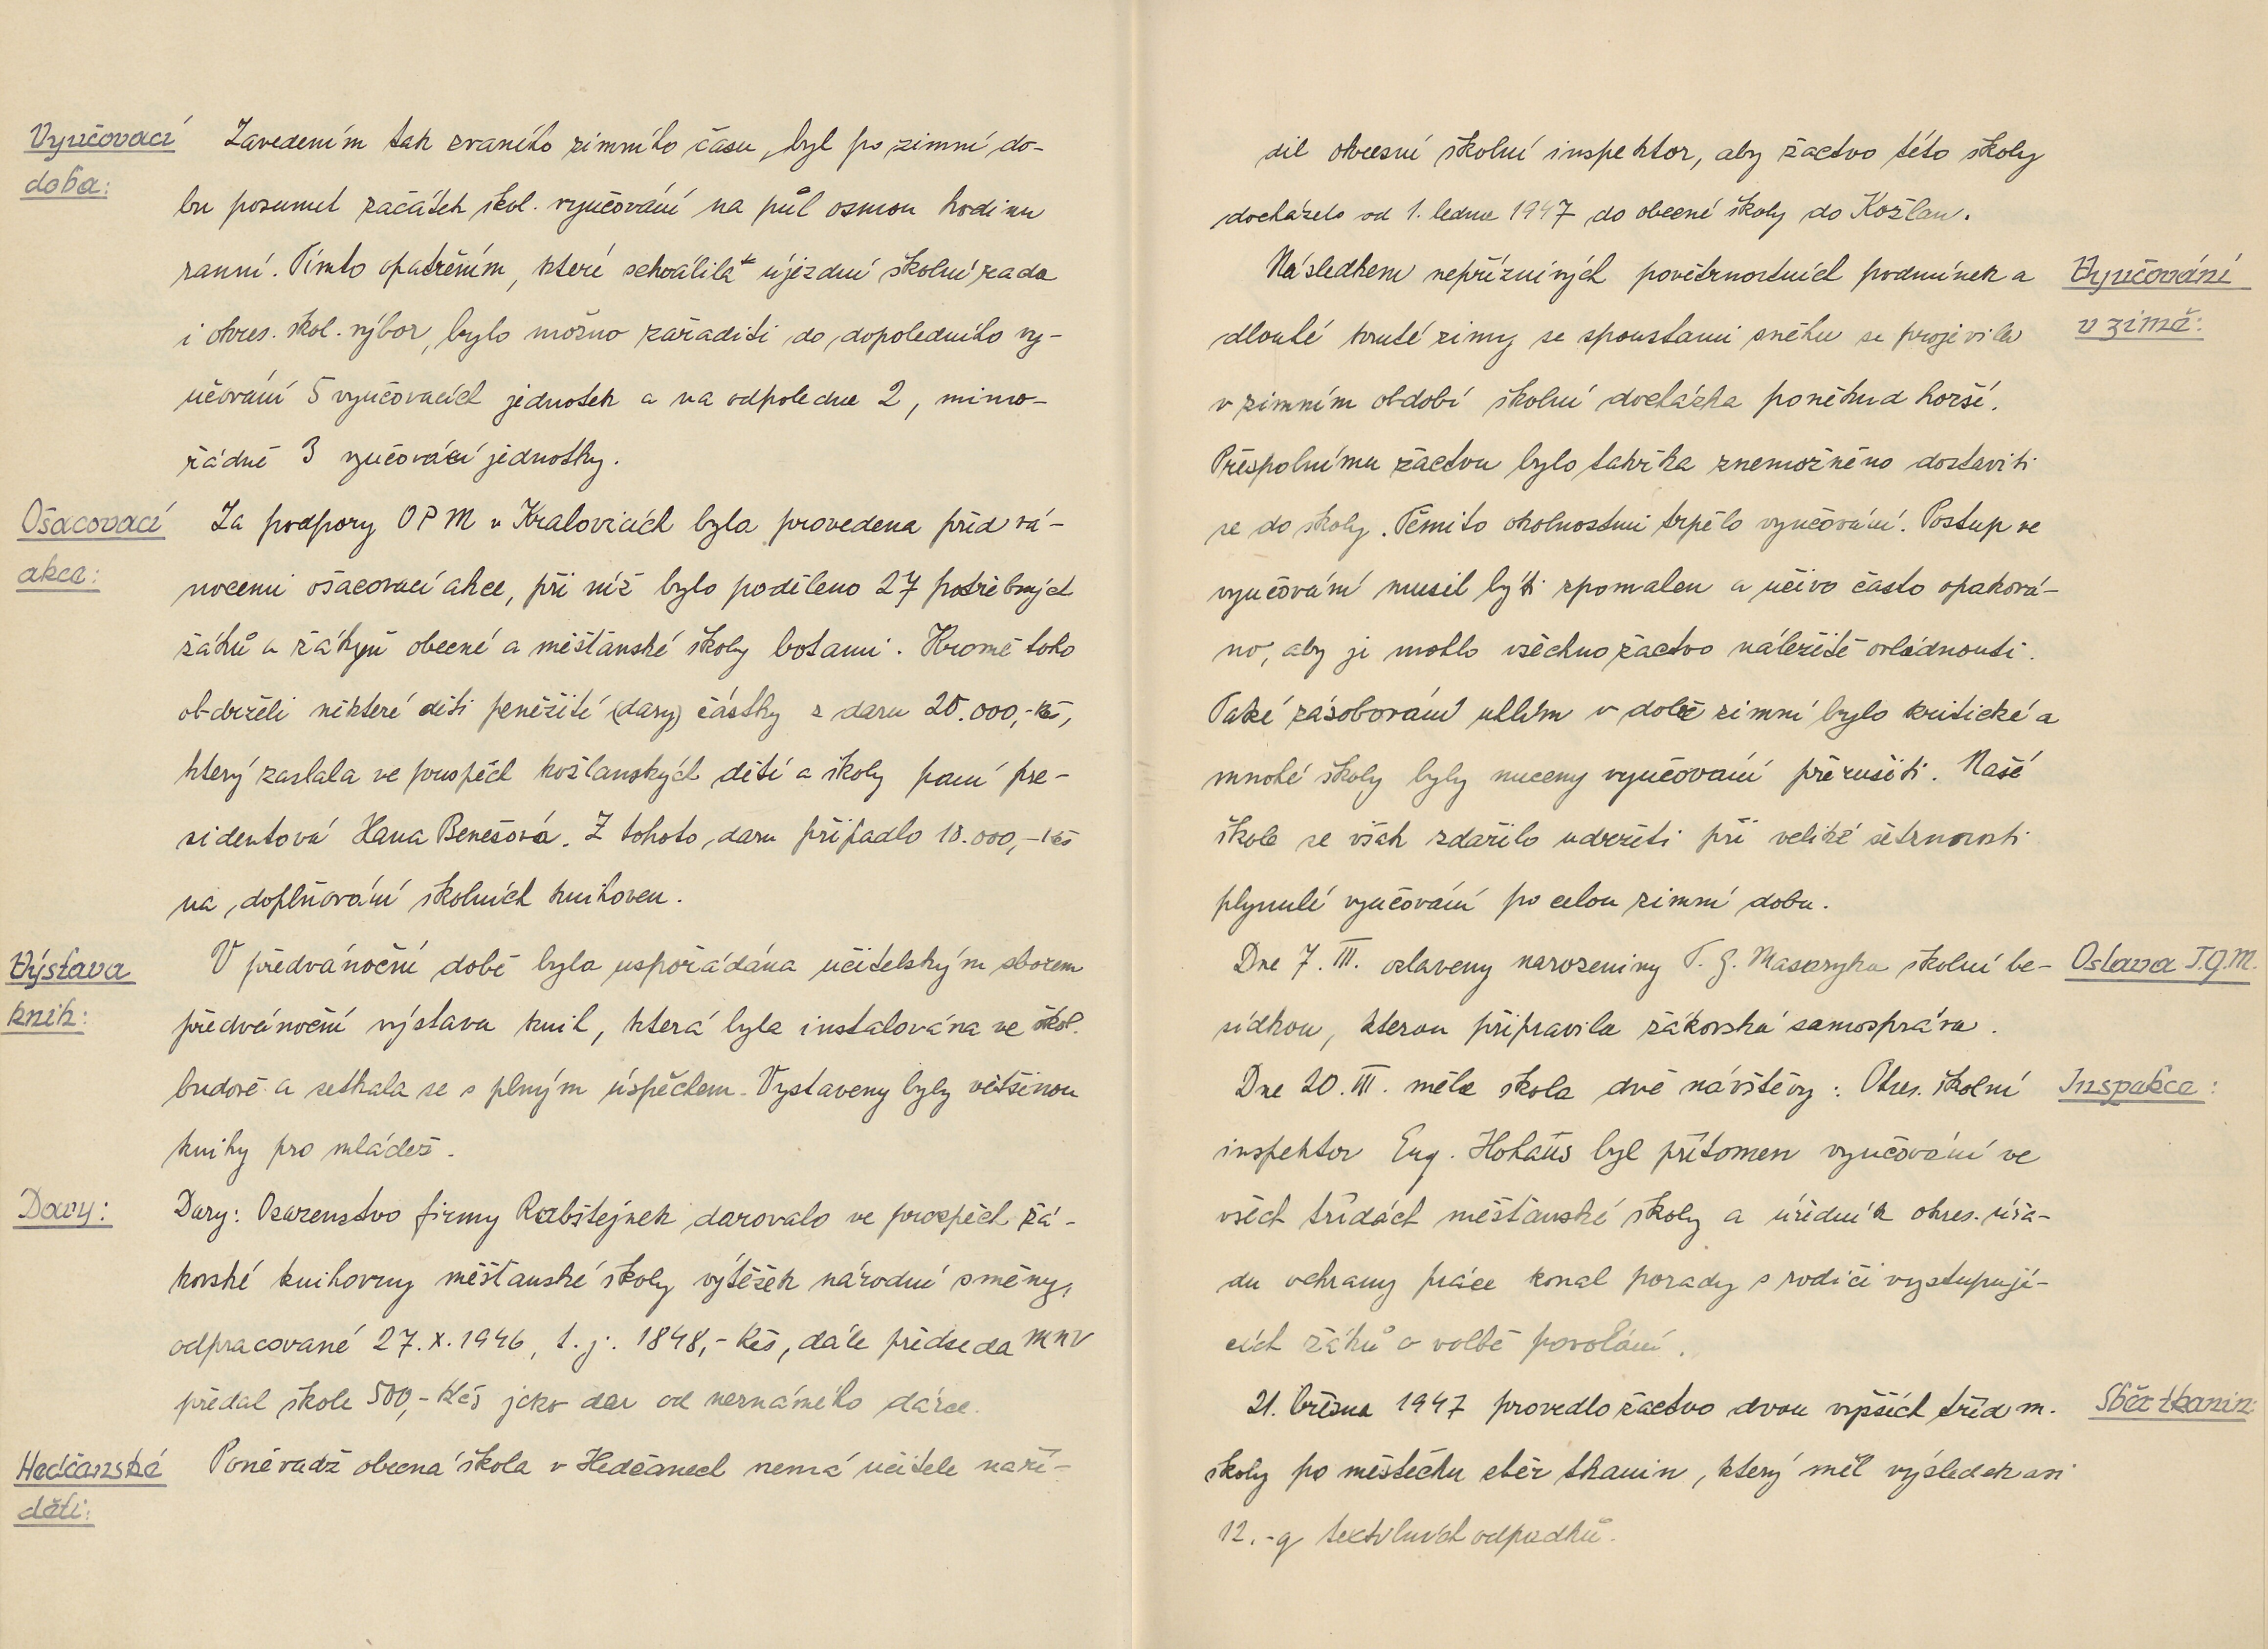 Vyučovací
doba:
Zavedením tak zvaného zimního času, byl po zimní do-
bu posunut začátek škol. vyučování na půl osmou hodinu
ranní. Tímto opatřením, které schválila újezdní školní rada
i okres. škol. výbor, bylo možno zařaditi do dopoledního vy-
učování 5 vyučovacích jednotek a na odpoledne 2, mimo-
řádně 3 vyučovací jednotky.
Ošacovací
akce:
Za podpory OPM v Kralovicích byla provedena před vá-
nocemi ošacovací akce, při níž bylo poděleno 27 potřebných
žáků a žákyň obecné a měšťanské školy botami. Kromě toho
obdrželi některé děti peněžité (dary) částky z daru 20.000,-Kčs,
který zaslala ve prospěch kožlanských dětí a školy paní pre-
sidentová Hana Benešová. Z tohoto daru připadlo 10.000,-Kčs
na doplňování školních knihoven.
Výstava
knih:
V předvánoční době byla uspořádána učitelským sborem
předvánoční výstava knih, která byla instalována ve škol.
budově a setkala se s plným úspěchem. Vystaveny byly většinou
knihy pro mládež.
Dary:
Dary: Osazenstvo firmy Rabštejnek darovalo ve prospěch žá-
kovské knihovny měšťanské školy výtěžek národní směny,
odpracované 27.X.1946, t.j. 1848,- Kčs, dále předseda MNV
předal škole 500,- Kčs jako dar od neznámého dárce.
Hedčanské
děti:
Poněvadž obecná škola v Hedčanech nemá učitele naří-
dil okresní školní inspektor, aby žactvo této školy
docházelo od 1. ledna 1947 do obecné školy do Kožlan.
Vyučování
v zimě:
Následkem nepříznivých povětrnostních podmínek a
dlouhé kruté zimy se spoustami sněhu se projevila
v zimním období školní docházka poněkud horší.
Přespolnímu žactvu bylo takřka znemožněno dostaviti
se do školy. Těmito okolnostmi trpělo vyučování. Postup ve
vyučování musil býti zpomalen a učivo často opaková-
no, aby je mohlo všechno žactvo náležitě ovládnouti.
Také zásobování uhlím v době zimní bylo kritické a
mnohé školy byly nuceny vyučování přerušiti. Naší
škole se však zdařilo udržeti při veliké šetrnosti
plynulé vyučování po celou zimní dobu.
Oslava T.G.M.
Dne 7.III. oslaveny narozeniny T. G. Masaryka školní be-
sídkou, kterou připravila žákovská samospráva.
Inspekce:
Dne 20.III. měla škola dvě návštěvy: Okres. školní
inspektor Eug. Hohaus byl přítomen vyučování ve
všech třídách měšťanské školy a úředník okres. úřa-
du ochrany práce konal porady s rodiči vystupují-
cích žáků o volbě povolání.
Sběr tkanin:
21. března 1947 provedlo žactvo dvou vyšších tříd m.
školy po městečku sběr tkanin, který měl výsledek asi
12.-q textilních odpadků.